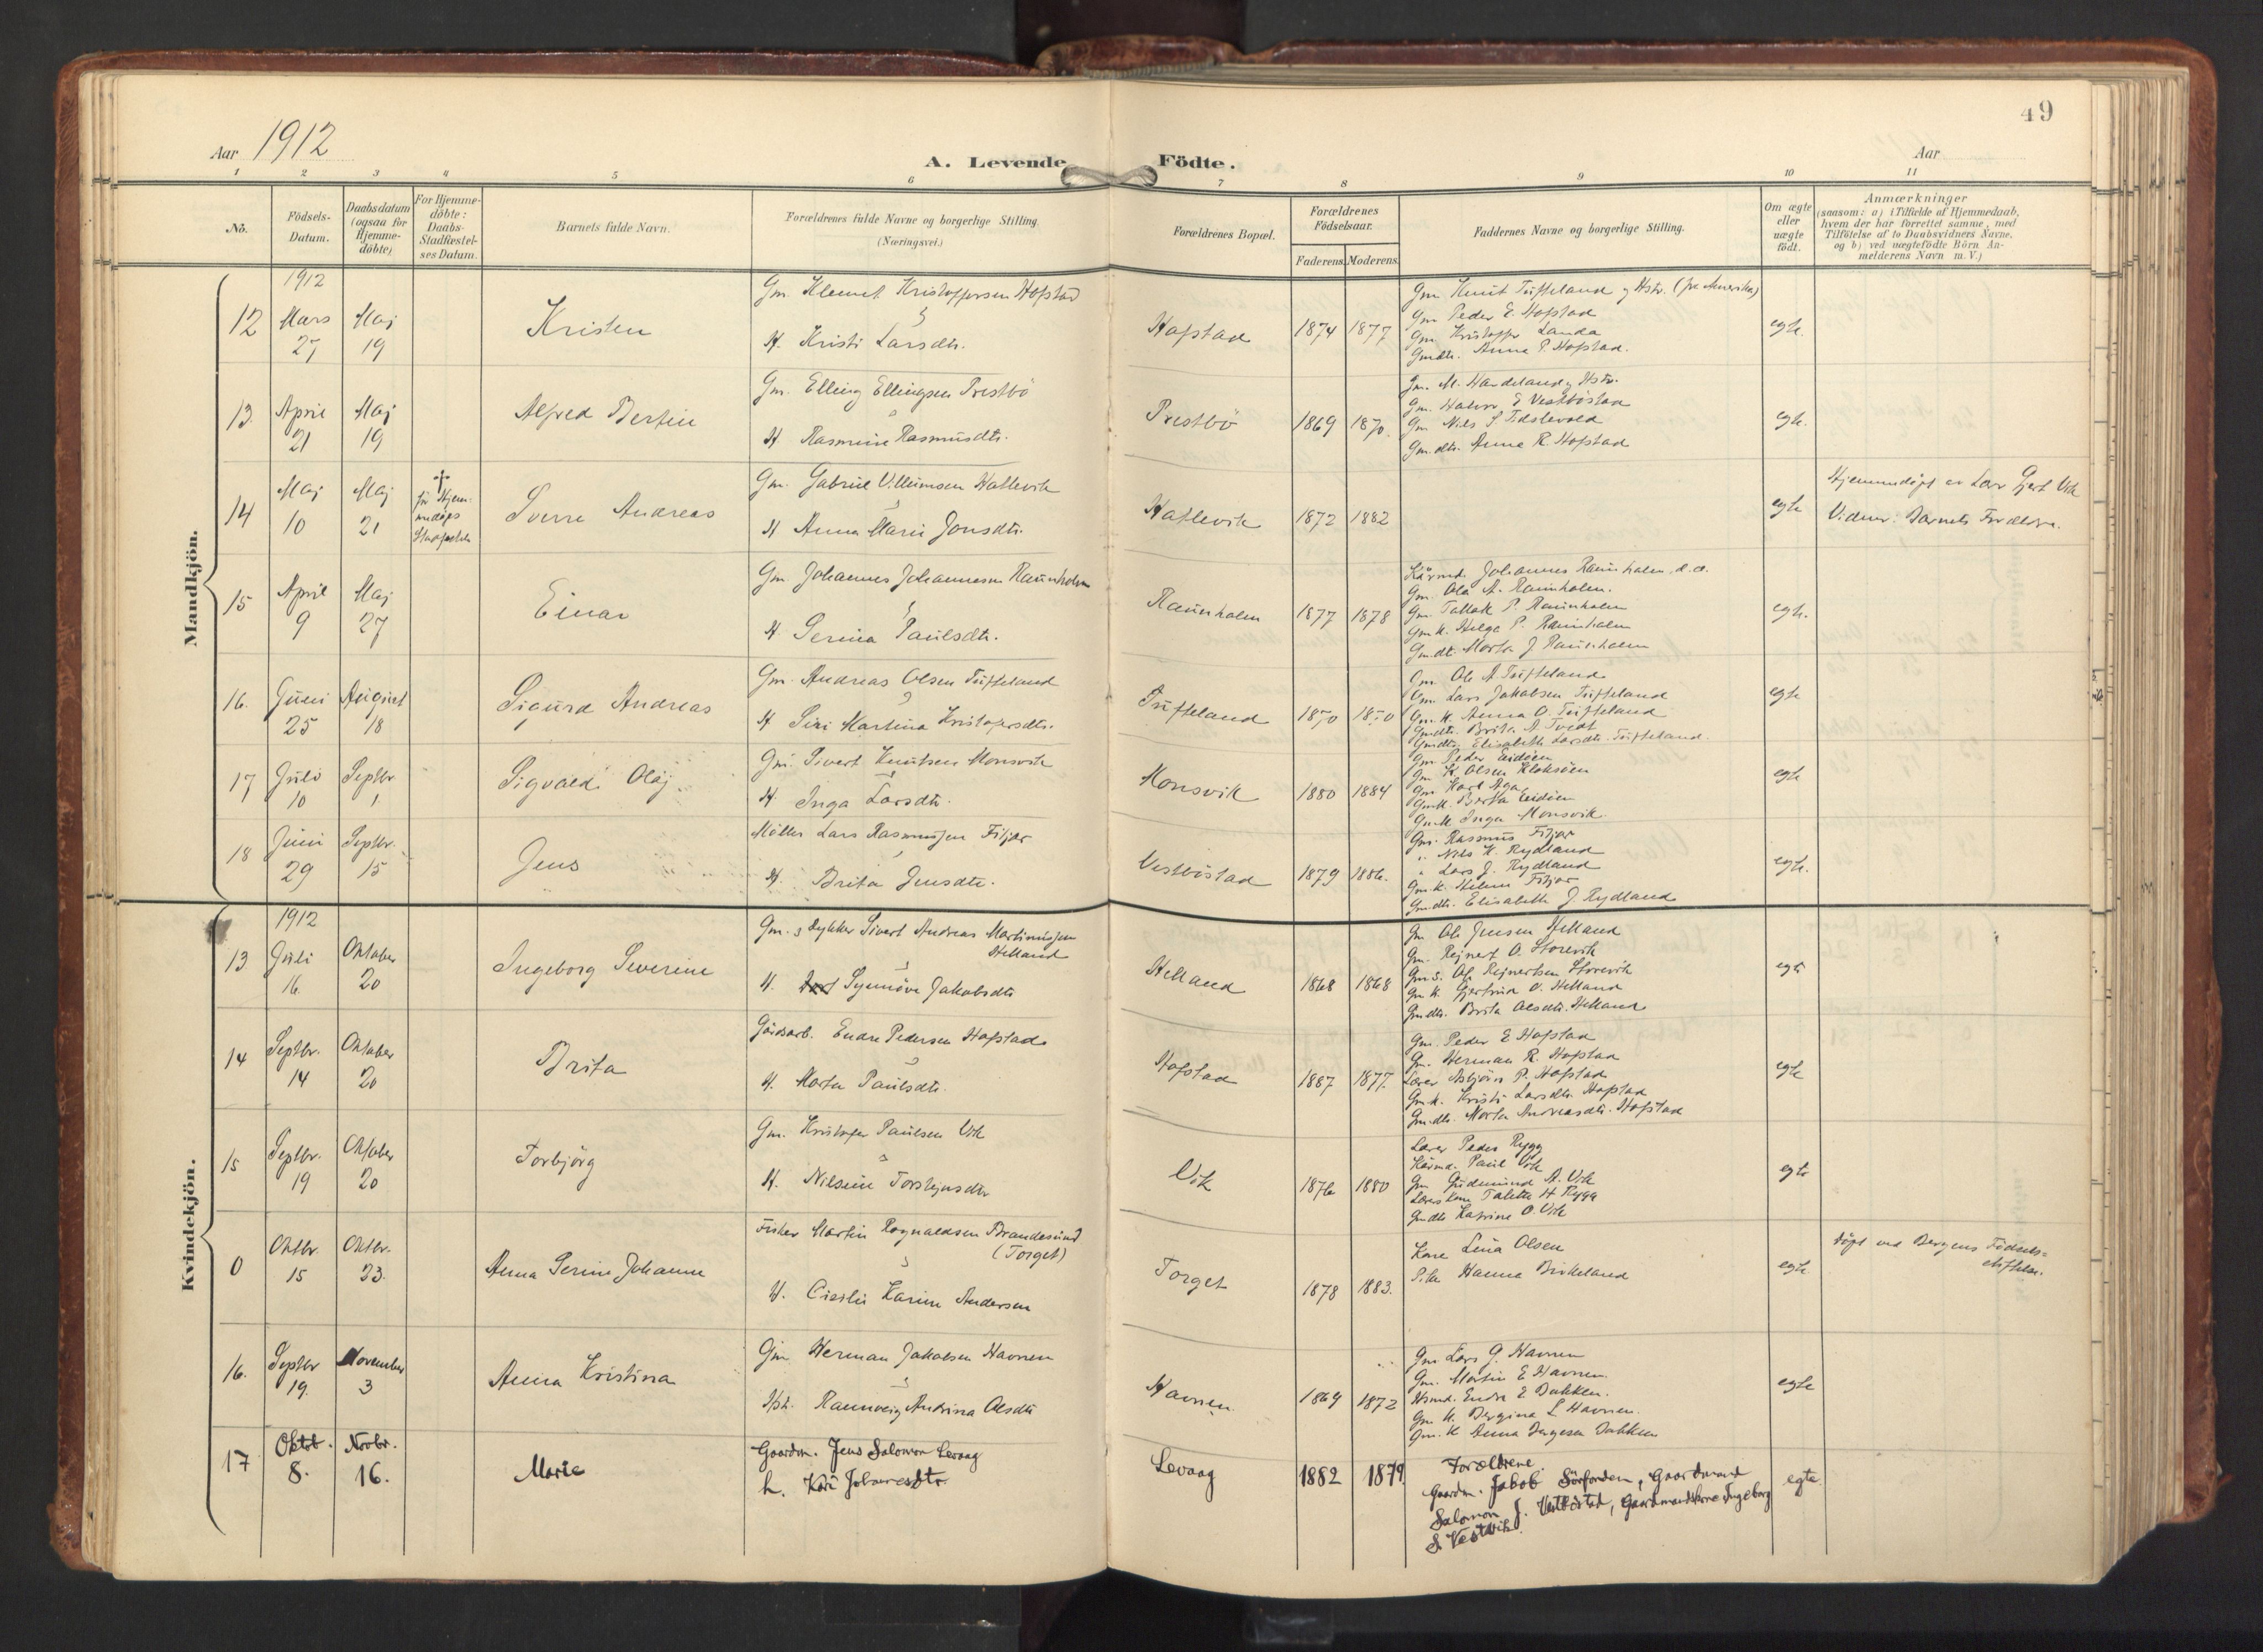 49
Aar 1912
A. Levende Födte.
Aar
1 2 3 4 5 6 7 8 9 10 11
No.
Födsels-Datum.
Daabsdatum (ogsaa for Hjemme-döbte)
For Hjemme-döbte: Daabs-Stadfæstel-ses Datum.
Barnets fulde Navn.
Forældrenes fulde Navne og borgerlige Stilling.
(Næringsvei.)
Forældrenes Bopæl.
Forældrenes Födselsaar.
Faderens. Moderens.
Faddernes Navne og borgerlige Stilling.
Om ægte eller uægte födt.
Anmærkninger
(saasom: a) i Tilfælde af Hjemmedaab,
hvem der har forrettet samme, med
Tilföielse af to Daabsvidners Navne,
og b) ved uægtefödte Börn An-
melderens Navn m. V.)
Mandkjön.
1912
12 Mars 27 Maj 19 Kristen
Gm. Klemet Kristoffersen Hofstad
H. Kristi Larsdtr.
Hofstad 1874 1877
Gm Knut Tufteland og Hstr. (fra Amerika)
Gm Peder E. Hofstad
Gm Kristoffer Landa
Gmdtr. Anna P. Hofstad.
egte.
13. April 21 Maj 19 Alfred Bertin
Gm. Elling Ellingsen Prestbö
H Rasmine Rasmusdtr.
Prestbö 1869 1870.
Gm. M. Handeland og Hstr.
Gm. Halvor E Vestböstad
Gm Nils S.
Gm.dtr. Anna R. Hofstad
egte.
14 Maj 10 Maj 21
Sverre Andreas
Gm. Gabriel Villumsen Hatlevik
H Anna Marie Jonsdtr.
Hatlevik 1872 1882
egte
Hjemmedöpt av Lars Gjert Vik
Vidner: Barnets Forældre.
15 April 9 Maj 27 Einar
Gm. Johannes Johannesen Raunholm
H Serina Paulsdtr.
Raunholm 1877 1878
Kårmd. Johannes Raunholm, d.e.
Gm. Ola A. Raunholm.
Gm. Tollak P. Raunholm
Gm k. Helga P. Raunholm
Gm.dtr. Marta J Raunholm
egte.
16. Juni 25 August 18 Sigurd Andreas
Gm. Andreas Olsen Tufteland
H Siri Martina Kristofersdtr.
Tufteland 1870 1870
Gm. Ole A Tufteland
Gm. Lars Jakobsen Tufteland
Gm. k. Anna O. Tufteland
Gmdtr. Brita A Tvedt
Gmdtr. Elisabeth Larsdtr. Tufteland.
egte
17 Juli 10 Septbr 1 Sigvald Olaj.
Gm. Sivert Knutsen Monsvik
H. Inga Larsdtr.
Monsvik 1880 1884
Gm. Peder Eidöen
Gm K. Olsen Kloksöen
Gm Karl Aga
Gm.k. Berta Eidöen
Gm.k Inga Monsvik.
egte
18 Juni 29 Septbr. 15 Jens
Möller Lars Rasmussen Fitjar
H. Brita Jensdtr.
Vestböstad 1879 1886.
Gm. Rasmus Fitjar
" Nils K. Rydland
" Lars J. Rydland
Gm.k. Helene Fitjar
Gm.dtr. Elisabeth J Rydland
egte.
Kvindekjön.
1912
13 Juli 16. Oktober 20 Ingeborg Severine
Gm. & Dykker Sivert Andreas Martinussen
Helland
H. Synnöve Jakobsdtr
Helland 1868 1868
Gm Ole Jensen Helland
Gm. Rejnert O. Storevik
Gm s. Ole Rejnertsen Storevik
Gm k. Gjertrud O. Helland
Gmdtr. Brita Olesdtr. Helland
egte
14 Septbr. 14 Oktober 20 Brita
Gårdsarb. Endre Pedersen Hofstad
H. Marta Paulsdtr.
Hofstad 1887 1877.
Gm. Peder E Hofstad
Gm. Herman R. Hofstad
Lærer Asbjörn P. Hofstad
Gm.k. Kristi Larsdtr. Hofstad
Gm.dtr. Marta Andreasdtr. Hofstad
egte
15 Septbr. 19 Oktober 20 Torbjörg
Gm. Kristofer Paulsen Vik
H. Nilsine Torsteinsdtr
Vik 1876 1880
Lærer Peder Rygg
Kårmd. Paul Vik
Gm Gudmund A. Vik
Lærerkone Taletta H Rygg
Gmdtr Katrine O. Vik
egte
0 Oktbr. 15 Oktbr. 23. Anna Serine Johanne
Fisker Martin Rognaldsen Brandesund
(Torget)
H. Cicilie Karine Andersen
Torget 1878 1883.
Kone Lina Olsen
Pike Hanna Birkeland
egte
döpt ved Bergens Födsels-
stiftelse.
16. Septbr 19. November 3 Anna Kristina
Gm. Herman Jakobsen Havnen
Hst. Raunveig Andrina Olesdtr
Havnen. 1869 1872
Gm Lars G. Havnen
Gm. Martin E Havnen.
Hsmd. Endre E Bakken.
Gm k. Bergina L Havnen.
Gm. k Anna Bakken
egte
17 Oktob. 8. Novbr. 16. Marie
Gaardm. Jens Salomon Levaag
h. Kari Johannesdtr.
Levaag 1882 1879.
Forældrene.
Gaardm. Jakob Sörfonden, Gaardmand
Salomon J. Vestböstad, Gaardmandskone Ingeborg
S. Vestvik.
egte.